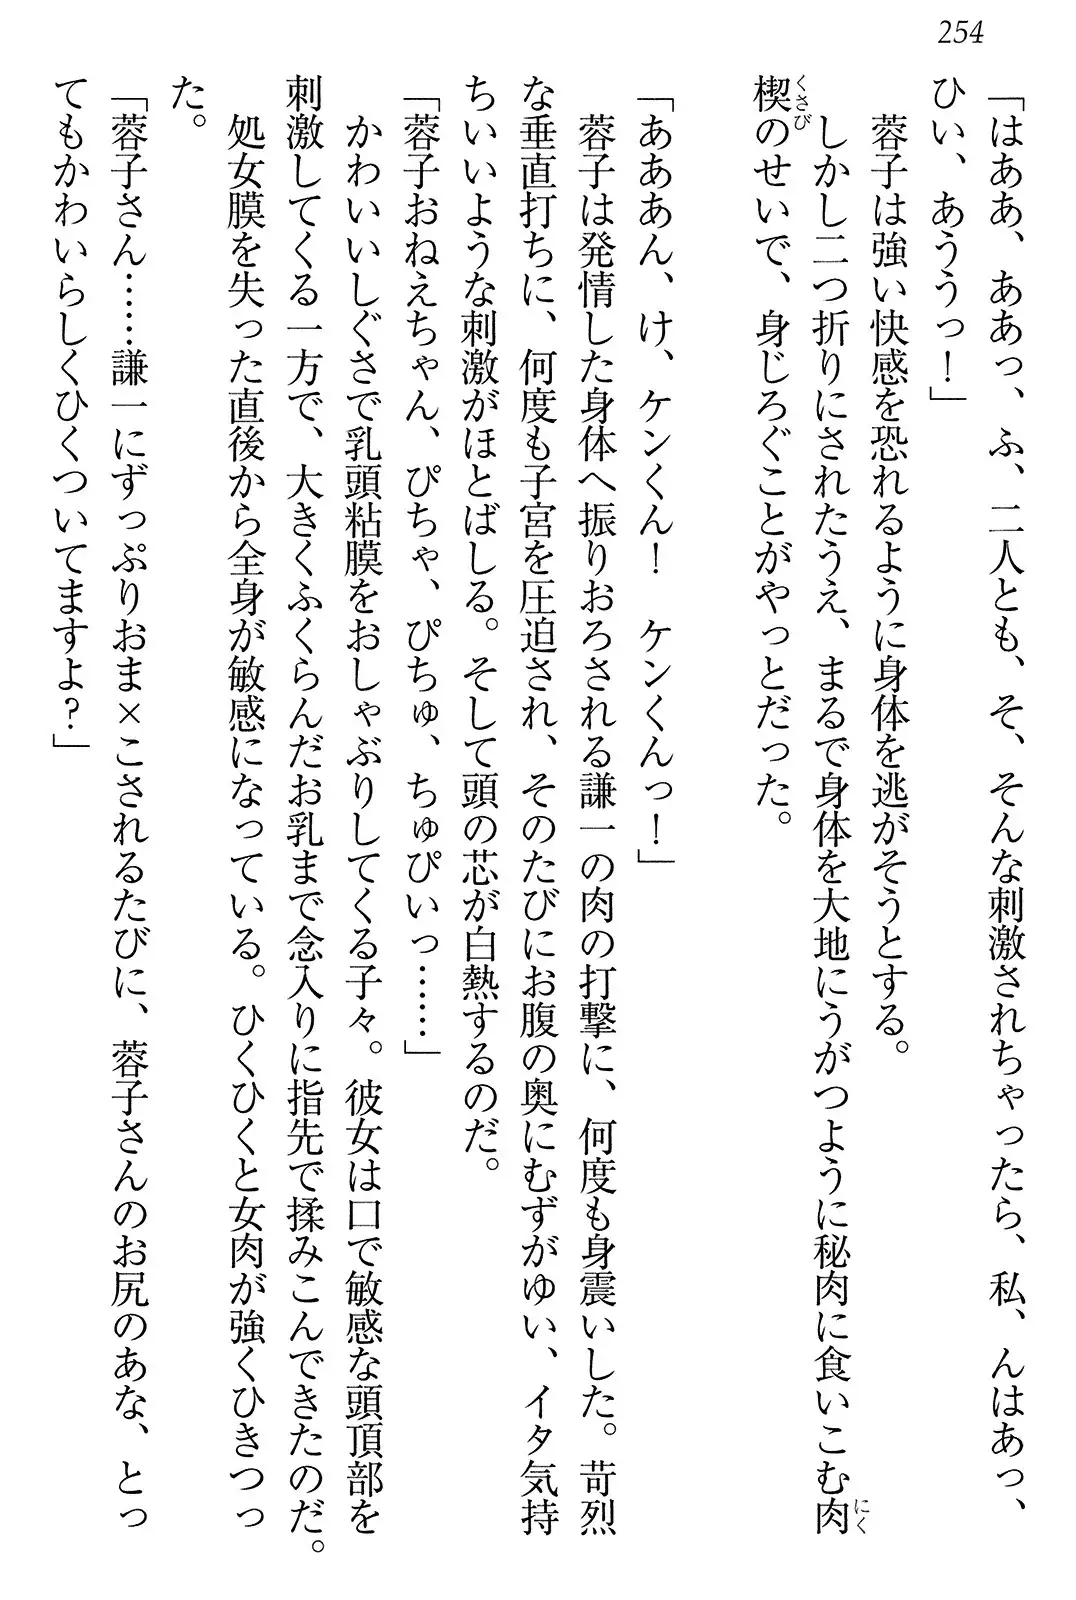 254
「はああ、ああっ、ふ、二人とも、そ、そんな刺激されちゃったら、私、んはあっ、
ひい、あううっ！」
蓉子は強い快感を恐れるように身体を逃がそうとする。
しかし二つ折りにされたうえ、まるで身体を大地にうがつように秘肉に食いこむ肉
楔のせいで、身じろぐことがやっとだった。
「あああん、け、ケンくん！　ケンくんっ！」
蓉子は発情した身体へ振りおろされる謙一の肉の打撃に、何度も身震いした。苛烈
な垂直打ちに、何度も子宮を圧迫され、そのたびにお腹の奥にむずがゆい、イタ気持
ちいいような刺激がほとばしる。そして頭の芯が白熱するのだ。
「蓉子おねえちゃん、ぴちゃ、ぴちゅ、ちゅぴいっ……」
かわいいしぐさで乳頭粘膜をおしゃぶりしてくる子々。彼女は口で敏感な頭頂部を
刺激してくる一方で、大きくふくらんだお乳まで念入りに指先で揉みこんできたのだ。
処女膜を失った直後から全身が敏感になっている。ひくひくと女肉が強くひきつっ
た。
「蓉子さん……謙一にずっぷりおま×こされるたびに、蓉子さんのお尻のあな、とっ
てもかわいらしくひくついてますよ？」